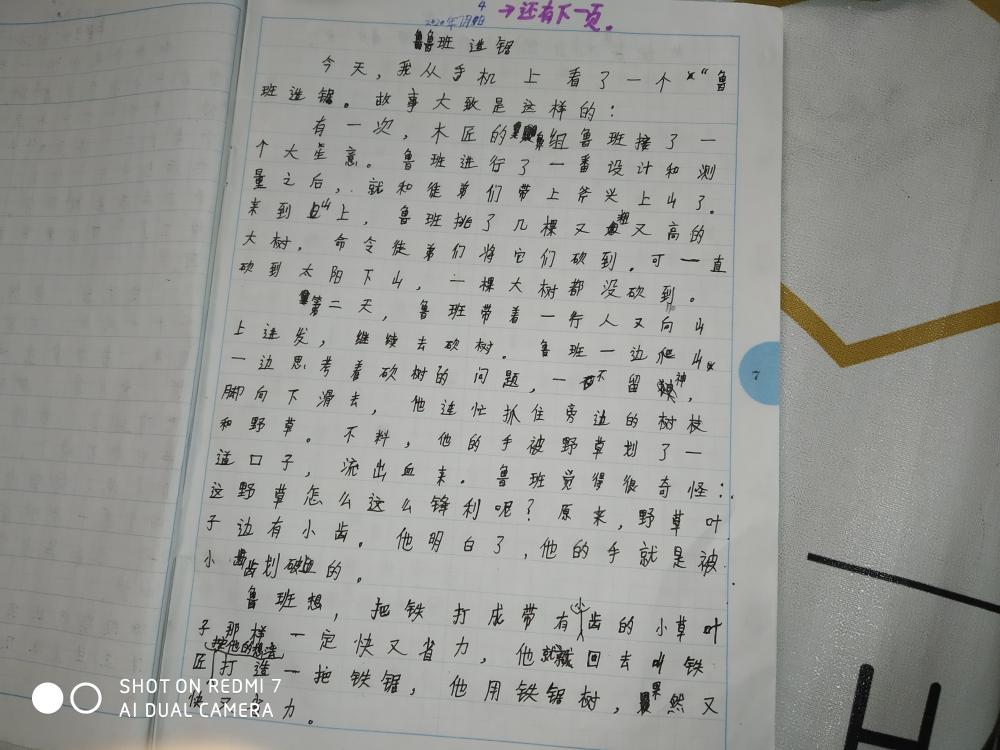 4 →还有下一页。
2020年7月
鲁班造锯
今天,我从手机上看了一个“鲁
班造锯。故事大致是这样的:
有一次,木匠的组鲁班接了一
个大生意。鲁班进行了一番设计和测
量之后,就和徒弟们带上斧头上山了。
来到山上,鲁班挑了几棵又粗又高的
大树。命令徒弟们将它们砍到。可一直
砍到太阳下山,一棵大树都没砍到。
第二天,鲁班带着一行人又向山
上进发,继续去砍树。鲁班一边爬山
一边思考着砍树的问题,一不留神,
脚向下滑去,他连忙抓住旁边的树枝
和野草。不料,他的手被野草划了一
道口子,流出血来。鲁班觉得很奇怪:
这野草怎么这么锋利呢?原来,野草叶
子边有小齿。他明白了,他的手就是被
小齿划破的。
鲁班想,把铁打成带有小齿的小草叶
子那样一定快又省力,他就回去叫铁
按他的想法
匠打造一把铁锯,他用铁锯树,果然又
快又省力。
7
SHOT ON REDMI 7
AI DUAL CAMERA